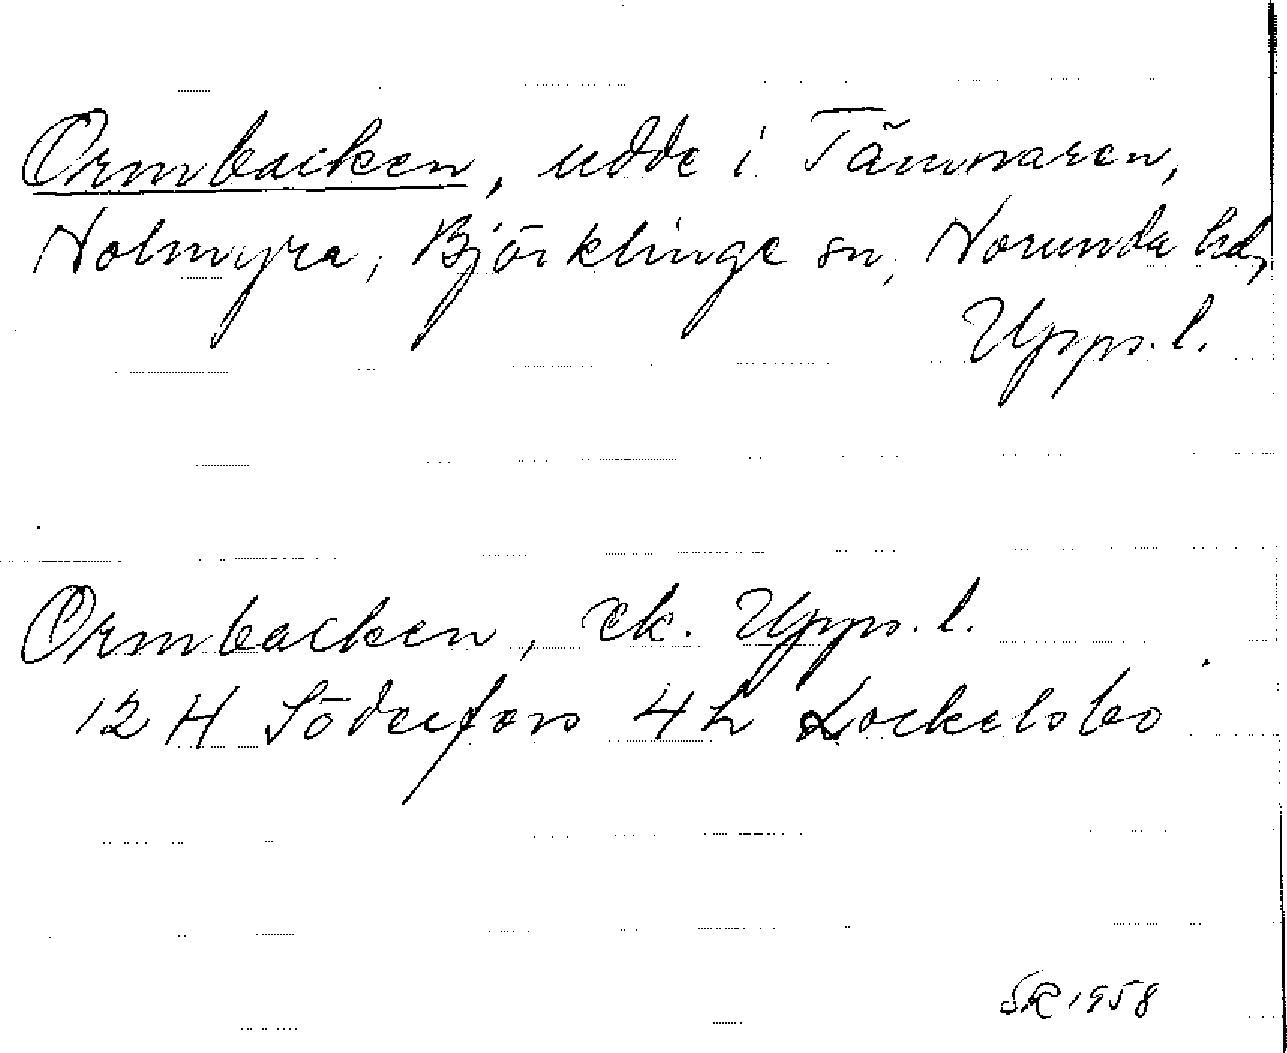 Ormbacken, udde i Tämnaren,
Holmyra, Björklinge sn, Norunda hd,
Upps. l.
Ormbacken, ek. Upps. l.
12 H Söderfors 4 h Lockelsbo
SR 1958